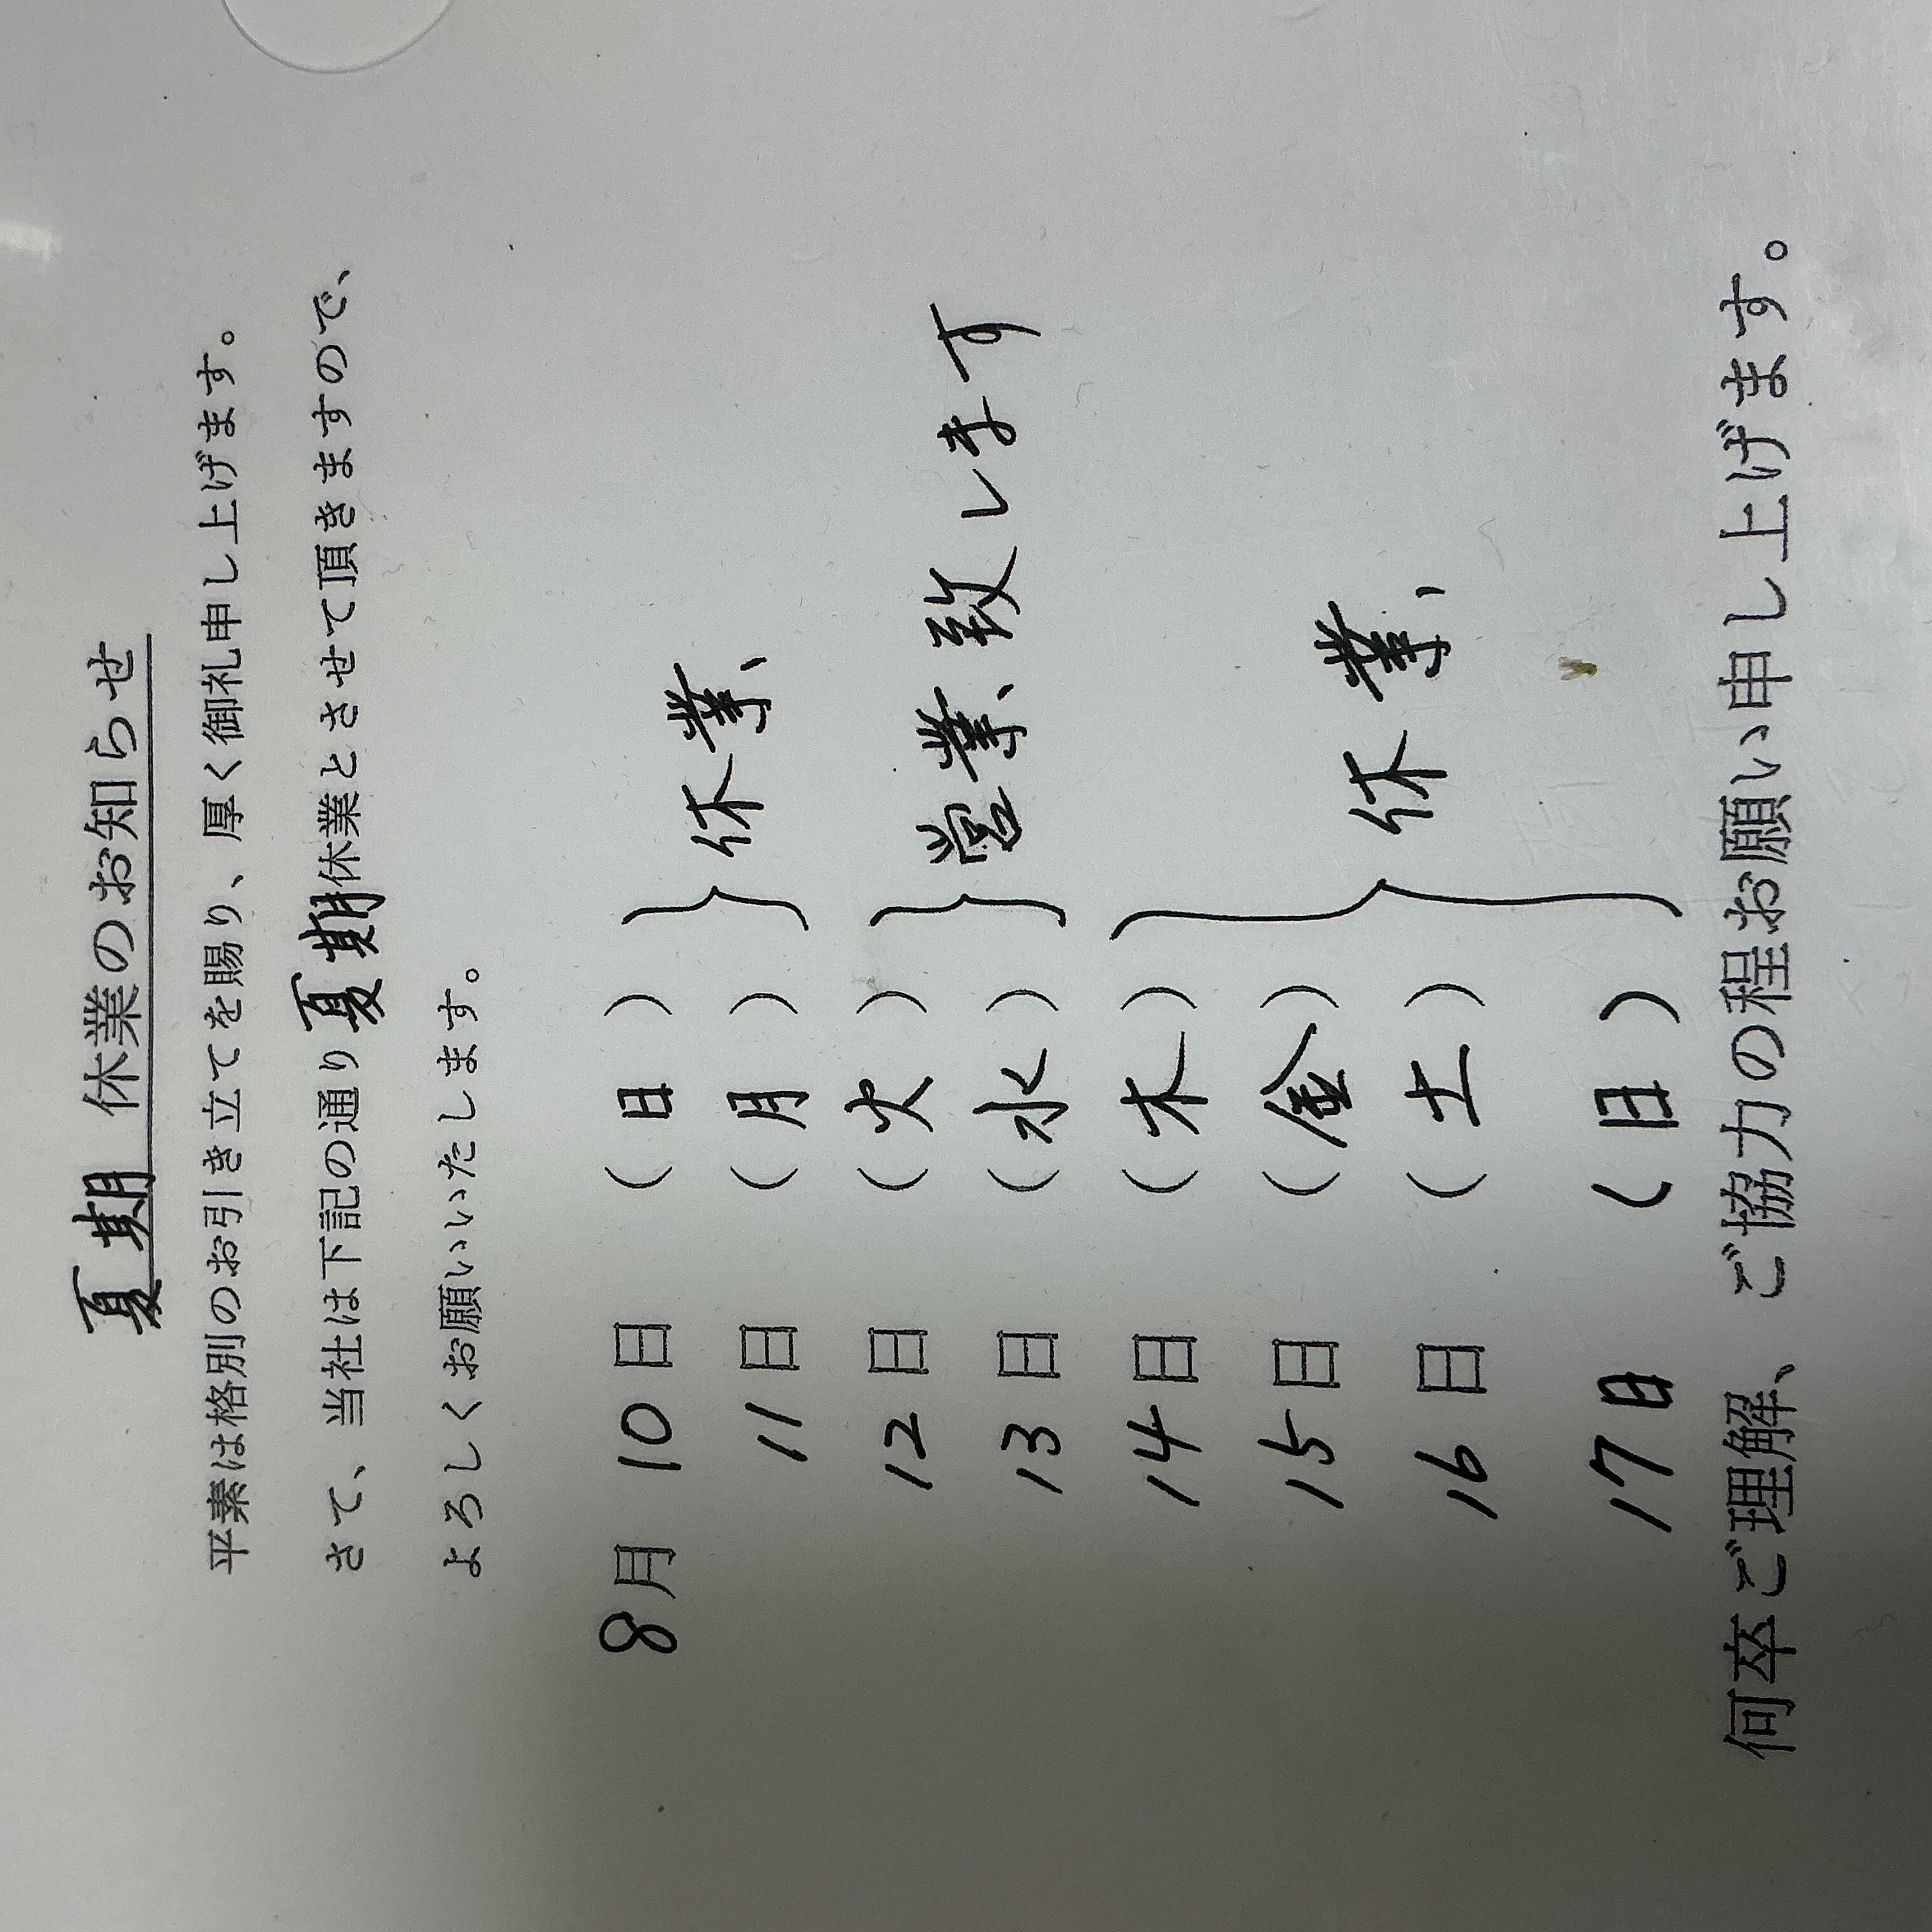 夏期 休業のお知らせ
平素は格別のお引き立てを賜り、厚く御礼申し上げます。
さて、当社は下記の通り夏期休業とさせて頂きますので、
よろしくお願いいたします。
8月 10日 (日)
11日 (月)
休業
12日 (火)
13日 (水)
営業致します
14日 (木)
15日 (金)
16日 (土)
17日 (日)
休業
何卒ご理解、ご協力の程お願い申し上げます。